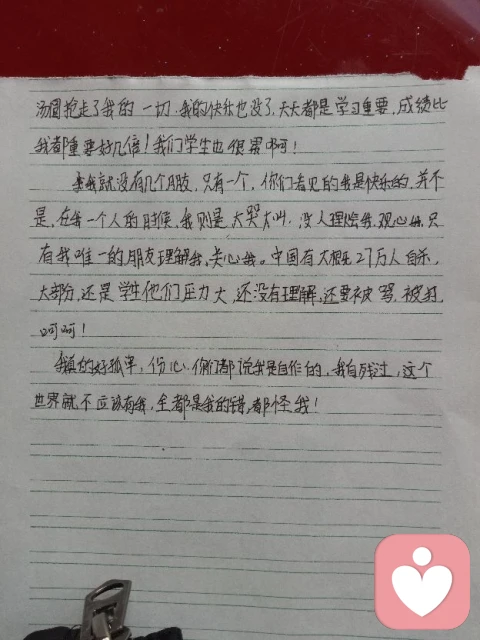 汤圆抢走了我的一切.我的快乐也没了,天天都是学习重要,成绩比
我都重要好几倍!我们学生也很累啊!
我就没有几个朋友,只有一个,你们看见的我是快乐的,并不
是,在我一个人的时候,我则是大哭大叫.没人理我,关心我,只
有我唯一的朋友理解我,关心我。中国有大概27万人自杀,
大部分还是学生他们压力大,还没有理解,还要被骂,被打,
呵呵!
我真的好孤单,伤心.你们都说我是自作的,我自残过,这个
世界就不应该有我,全都是我的错,都怪我!